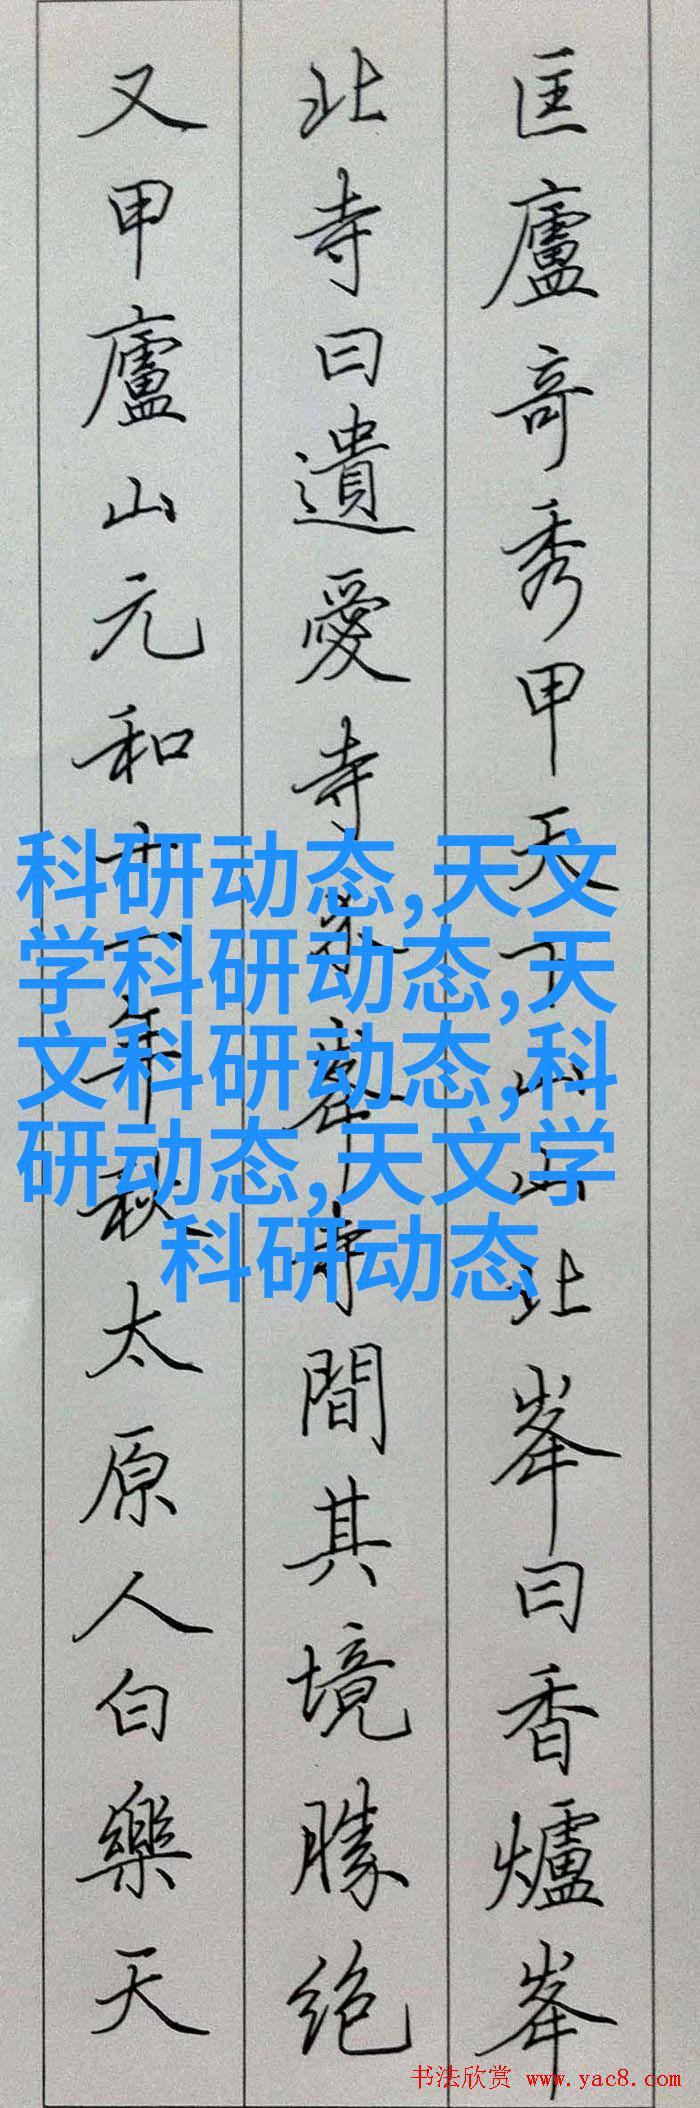 匡廬奇秀甲天下山山北峯曰香爐峯
北寺曰遺愛寺介峯寺間其境勝绝
又甲廬山元和十一年秋太原人白樂天
科研动态,天文
学科研动态,天
文科研动态,科
研动态,天文学
科研动态
书法欣赏 www.yac8.com